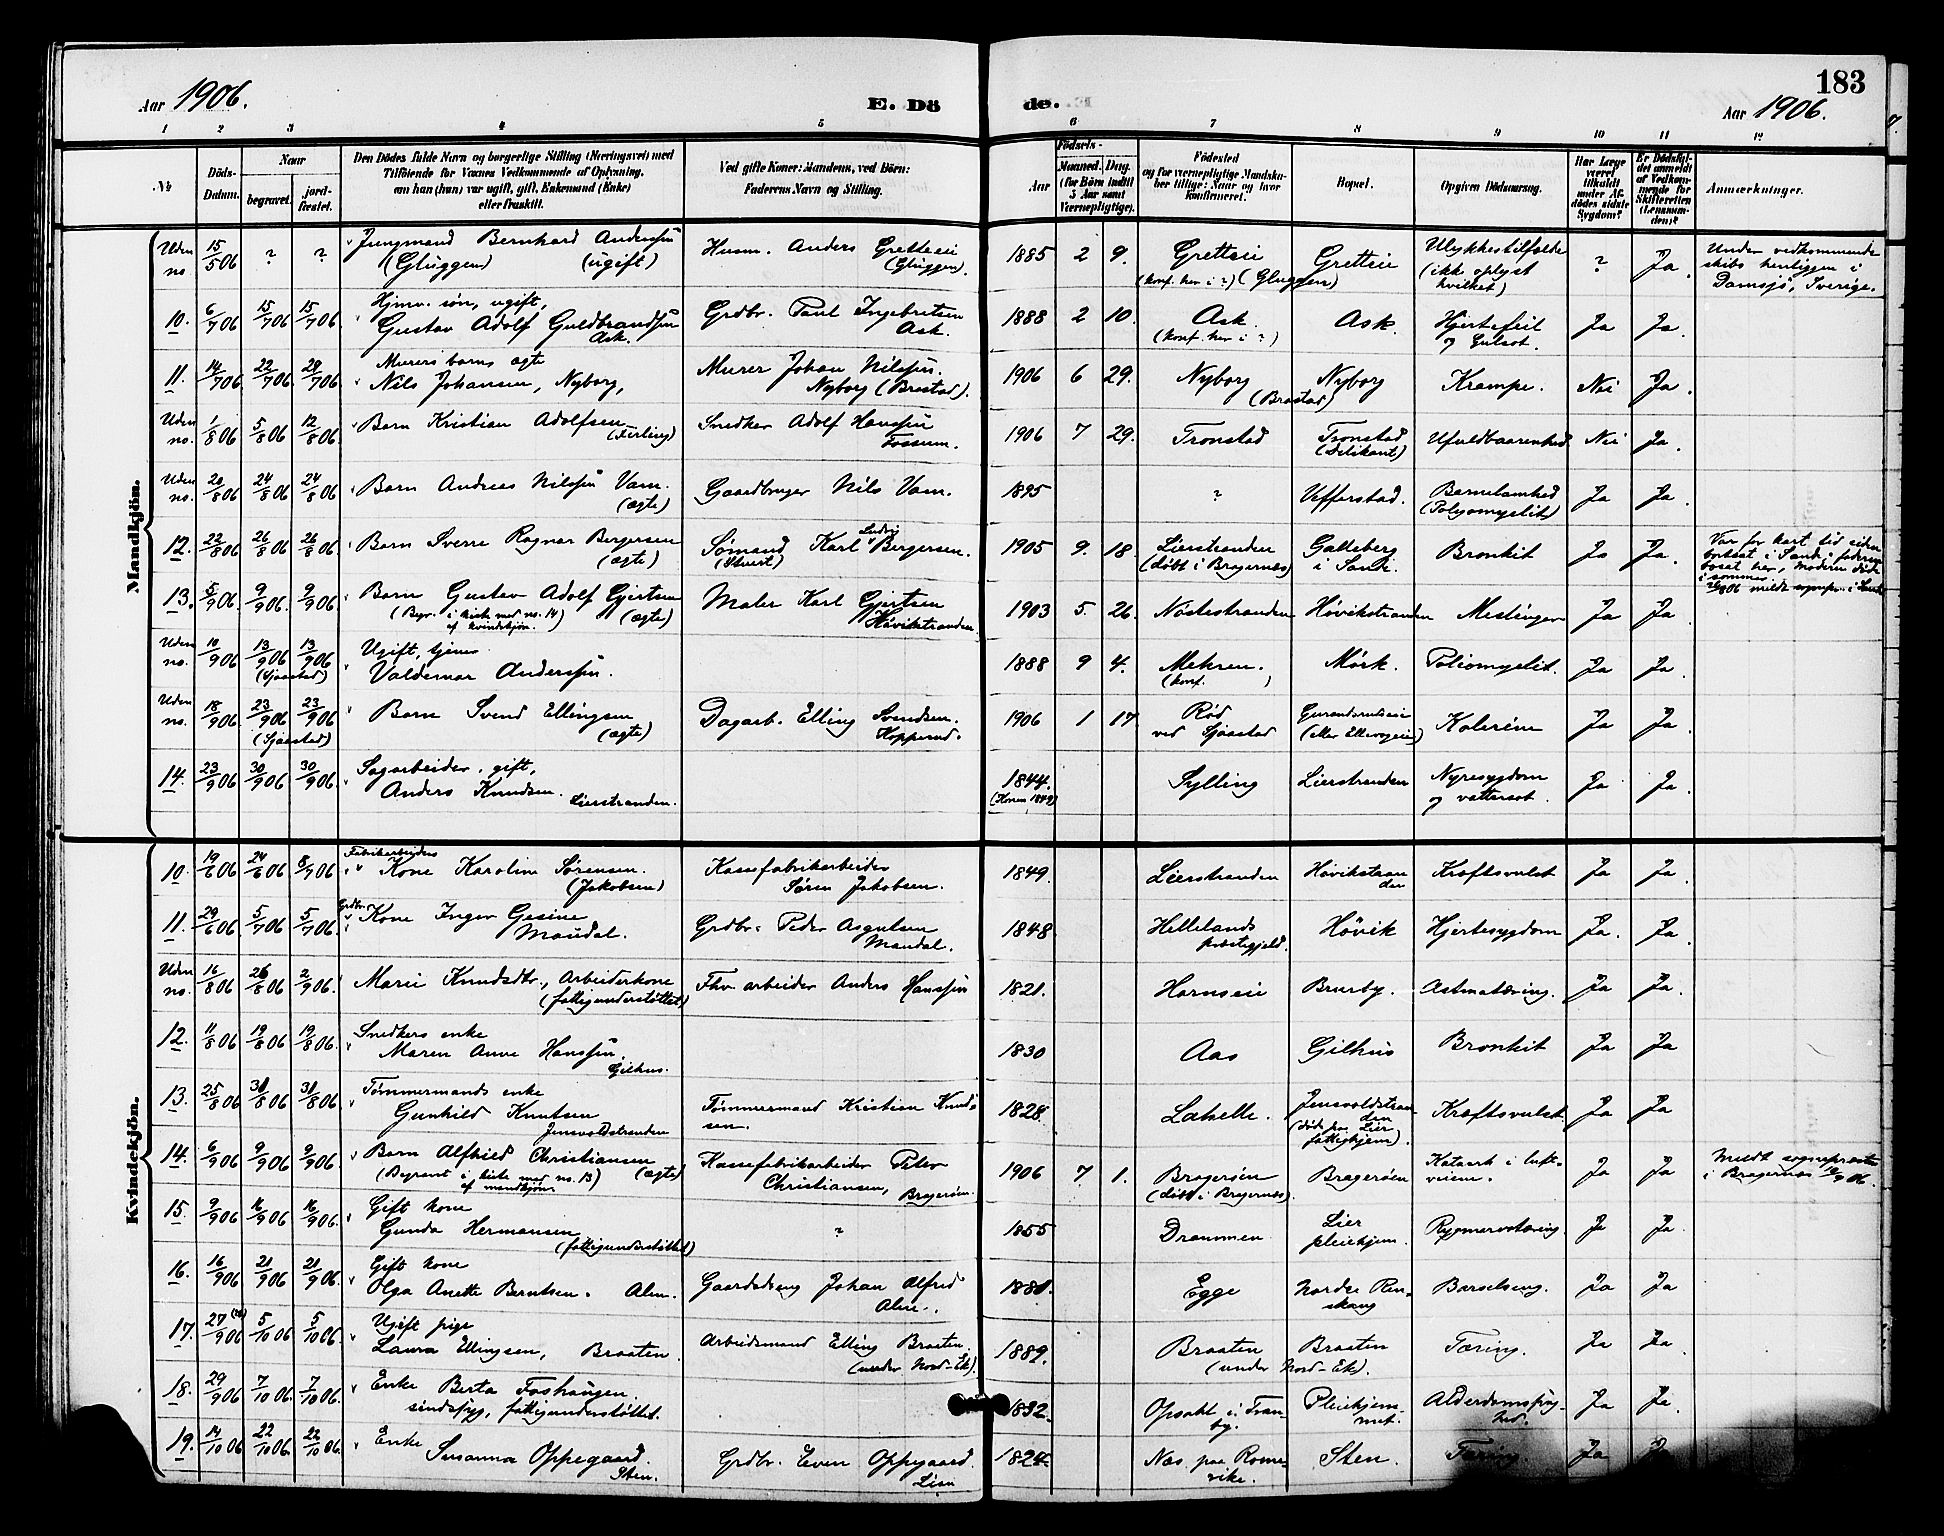 183
Aar 1906.
E. Dö
de.
Aar 1906.
1 2 3 4 5 6 7 8 9 10 11 12
№
Döds-
Datum.
Naar
begravet.
jord-
fæstet.
Den Dödes fulde Navn og borgerlige Stilling (Næringsvei) med
Tilföiende for Voxnes Vedkommende af Oplysning,
om han (hun) var ugift, gift, Enkemand (Enke)
eller fraskilt.
Ved gifte Koner: Mandens, ved Börn:
Faderens Navn og Stilling.
Födsels-
Aar
Maaned. Dag.
(for Börn indtil
5 Aar samt
Værnepligtige).
Födested
og for værnepligtige Mandska-
ber tillige: Naar og hvor
konfirmeret.
Bopæl.
Opgiven Dödsaarsag.
Har Læge
været
tilkaldt
under Af-
dödes sidste
Sygdom?
Er Dödsfal-
det anmeldt
af Vedkom-
mende for
Skifteretten
(Lensman-
den)?
Anmærkninger.
Mandkjön.
Uden no 15/5 06 ? ? Jungmand Bernhard Anderssøn
(Gluggen) (ugift)
Husm. Anders Gretteeie
(Gluggen).
1885 2 9. Gretteie
(konf. her i ?) (Gluggen)
Gretteie
Ulykkestilfælde
(ikk oplyst
hvilket)
? Ja.
Under vedkommende
skibs henliggen i
Domsjö, Sverige.
10. 6/7 06 15/7 06 15/7 06 Hjmv. søn, ugift,
Gustav Adolf Guldbrandsøn
Ask.
Grdbr. Paul Ingebretsen
Ask.
1888 2 10. Ask.
(konf. her i ?)
Ask. Hjertefeil
og Gulsot.
Ja Ja.
11. 14/7 06 22/7 06 29/7 06 Murers barn ægte
Nils Johansen, Nyborg,
Murer Johan Nilssøn.
Nyborg (Brastad).
1906 6 29. Nyborg
(Brastad)
Nyborg Krampe. Nei Ja.
Uden no. 1/8 06 5/8 06 12/8 06 Barn Kristian Adolfsen
Snedker Adolf Hanssøn
Fossum.
1906 7 29. Tronstad Tronstad
Ufuldbaarenhed Nei Ja.
Uden no. 20/8 06 24/8 06 24/8 06 Barn Andreas Nilssøn Vam.
(ægte)
Gaardbruger Nils Vam.
1895 ? Ufferstad. Barnelamhed
(Polyomyelit)
Ja Ja.
12. 22/8 06 26/8 06 26/8 06 Barn Sverre Ragnar Bergersen
(ægte)
Sømand Karl Ludvig Bergersen.
1905 9. 18. Lierstranden
(døbt i Bragernes)
Galleberg
i Sande.
Bronkit Ja Ja.
Var for kort tid siden
bortsat i Sande, faderen
bosat her, moderen død
i sommer
13. 5/9 06 9/9 06 9/9 06 Barn Gustav Adolf Gjertsen
(Begr. i kiste med no. 14 af kvindekjøn.) (ægte)
Maler Karl Gjertsen
Høvikstranden
1903 5. 26. Nøstestranden Høvikstranden Meslinger Ja Ja
Uden no. 10/9 06 13/9 06 13/9 06
(Sjaastad)
Ugift, tjener
Valdemar Anderssøn.
1888 9 4. Mehren.
(konf. )
Mørk. Poliomyelit. Ja Ja.
Uden no. 18/9 06 23/9 06 23/9 06
(Sjaastad)
Barn Svend Ellingsen
(ægte)
Dagarb. Elling Svendsen.
Kopperud.
1906 1 17. Rød
ved Sjaastad
Kolerine Ja Ja
14. 23/9 06 30/9 06 30/9 06 Sagarbeider, gift,
Anders Knudsen. Lierstranden.
1844.
(Konen 1849)
Sylling Lierstranden Nyresygdom
og vattersot.
Ja Ja.
Kvindekjön.
10. 19/6 06 24/6 06 8/7 06 Fabrikarbeiders
Kone Karolin Sørensen.
(Jakobsen)
Kassefabrikarbeider
Søren Jakobsen.
1849. Lierstranden Høvikstran-
den
Kræftsvulst Ja Ja.
11. 29/6 06 5/7 06 5/7 06 Grdbr.
Kone Inger Gesine
Maudal.
Grdbr. Peder Asgutsen
Maudal.
1848. Hellelands
præstegjeld.
Høvik Hjertesygdom Ja. Ja.
Uden no. 16/8 06 26/8 06 2/9 06 Marie Knudsdtr., Arbeiderkone
(fattigunderstøttet)
Fhv. arbeider Anders Hanssøn
1821. Hornseie Brurby. Astmatæring. Ja Ja.
12 11/8 06 19/8 06 19/8 06 Snedkers enke
Maren Anne Hanssøn.
Gilhus.
1830 Aas Gilhus Bronkit Ja Ja.
13. 25/8 06 31/8 06 31/8 06 Tømmermands enke
Gunhild Knutsen
Jensvoldstranden
Tømmermand Kristian Knud-
sen.
1828. Løkelle. Jensvoldstran-
den
(død paa Lier
fattighjem).
Kræftsvulst. Ja Ja
14. 6/9 06 9/9 06 9/9 06 Barn Alfhild Christiansen
(Begravet i kiste med no. 13 af mandkjøn) (ægte)
Kassefabrikarbeider Peter
Christiansen, Bragerøen.
1906 7 1. Bragerøen
(døbt i Bragernes)
Bragerøen Katarrh i luft-
veiene.
Ja Ja.
Meldt sognepræsten
i Bragernes 10/9 06.
15. 9/9 06 16/9 06 16/9 06 Gift kone
Gunda Hermansen
(fattigunderstøttet)
?
1855 Drammen Lier
pleiehjem.
Rygmarvstæring. Ja Ja.
16. 16/9 06 21/9 06 21/9 06 Gift kone
Olga Anette Berntsen. Alm.
Gaardsdreng Johan Alfred
Alm.
1881. Egge Nordre Ren-
skaug
Barselseng. Ja Ja
17. 27/9 06 5/10 06 5/10 06 Ugift pige
Laura Ellingsen, Braaten.
Arbeidsmand Elling Braaten.
(under Nord-Ek).
1889. Braaten Braaten
(under Nord-Ek).
Tæring. Ja Ja.
18. 29/9 06 7/10 06 7/10 06 Enke Berta Foshaugen.
sindssyg, fattigunderstøttet.
1832. Opsahl i Tran-
by.
Pleiehjem-
met.
Alderdomssvag-
hed.
Ja Ja.
19. 14/10 06 22/10 06 22/10 06. Enke
Susanna Oppegaard.
Sten.
Grdbr. Even Oppegaard.
Lier
1824. Næs paa Rome-
rike.
Sten. Tæring. Ja Ja